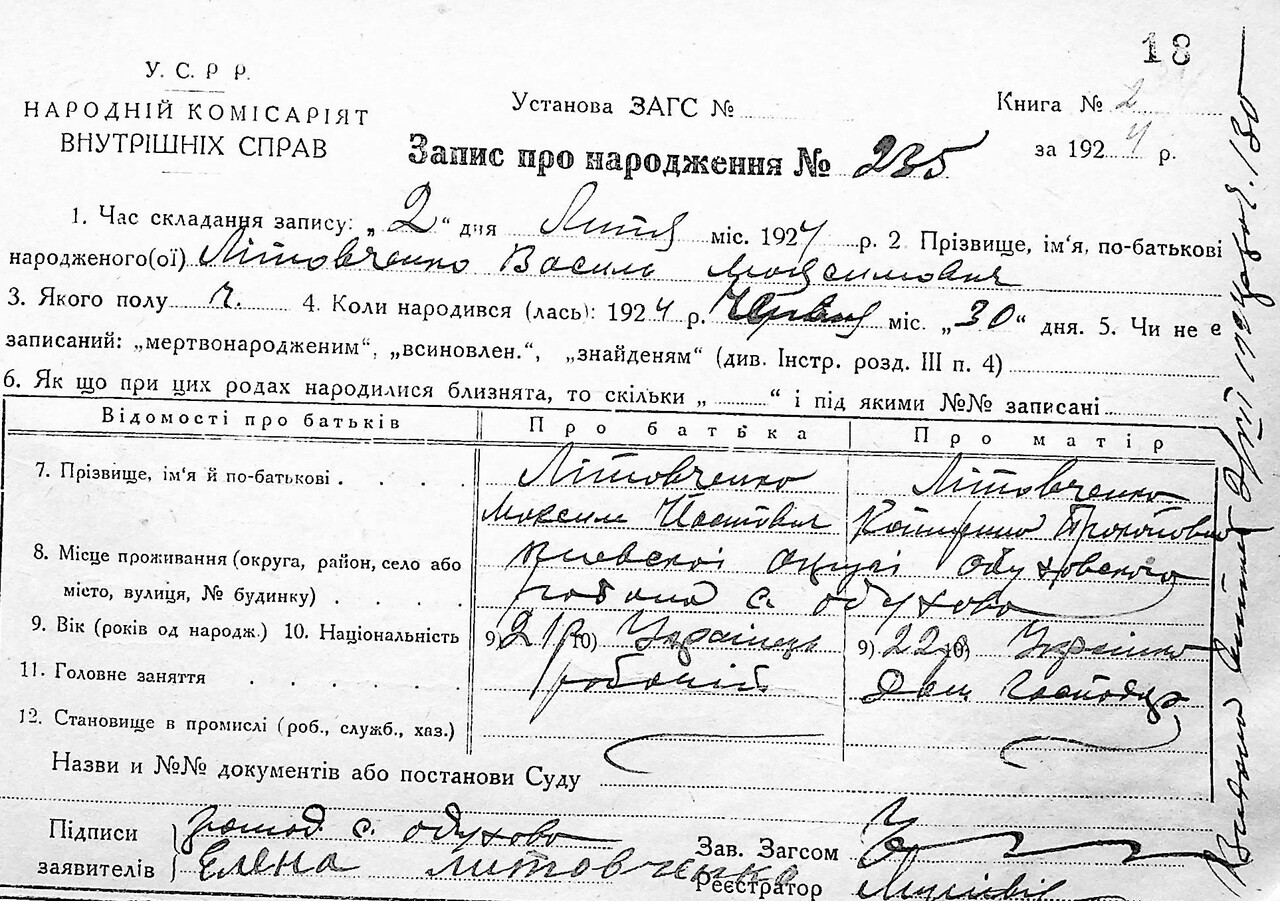 18
У. С. Р Р.
НАРОДНІЙ КОМІСАРІЯТ
ВНУТРІШНІХ СПРАВ
Установа ЗАГС №
Книга № 2
за 1924 р.
Запис про народження № 235
1. Час складання запису: „ 2 “ дня Липня міс. 1924 р. 2 Прізвище, ім'я, по-батькові
народженого(ої) Літовченко Василь Максимович
3. Якого полу ч. 4. Коли народився (лась): 1924 р. Червня міс. „30“ дня. 5. Чи не є
записаний: „мертвонародженим“, „всиновлен.“, „знайденям“ (див. Інстр. розд. III п. 4)
6. Як що при цих родах народилися близнята, то скільки „ “ і під якими №№ записані
Відомості про батьків Про батька Про матір
7. Прізвище, ім'я й по-батькові . . . . Літовченко Літовченко
Максим
8. Місце проживання (округа, район, село або
місто, вулиця, № будинку) . . . . с. Обухово
9. Вік (років од народж.) 10. Національність 9) 21 р 10) Українець 9) 22 10) Українка
11. Головне заняття . . . . . робочий Дом. Господар
12. Становище в промислі (роб., служб., хаз.)
Назви и №№ документів або постанови Суду
Підписи
заявителів
с. Обухово
Елена Литовченко
Зав. Загсом
Реєстратор